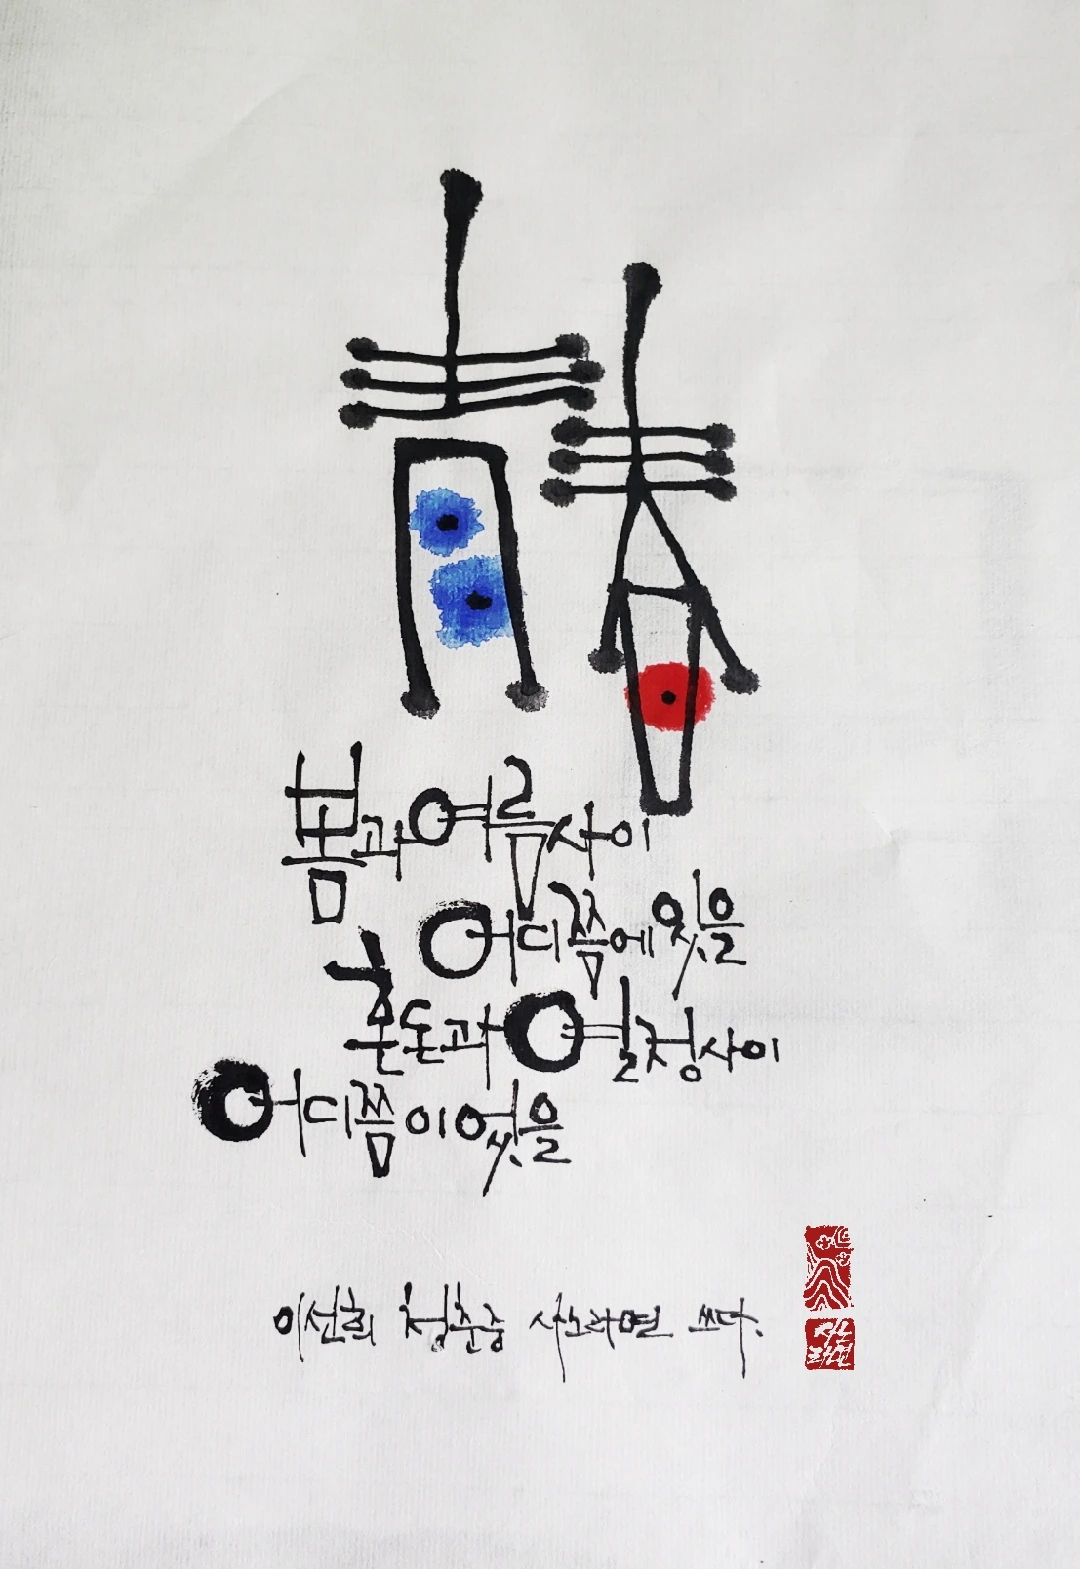 青春
봄과여름사이
어디쯤에있을
혼돈과열정사이
어디쯤이었을
이선희 청춘중 사노라면 쓰다.